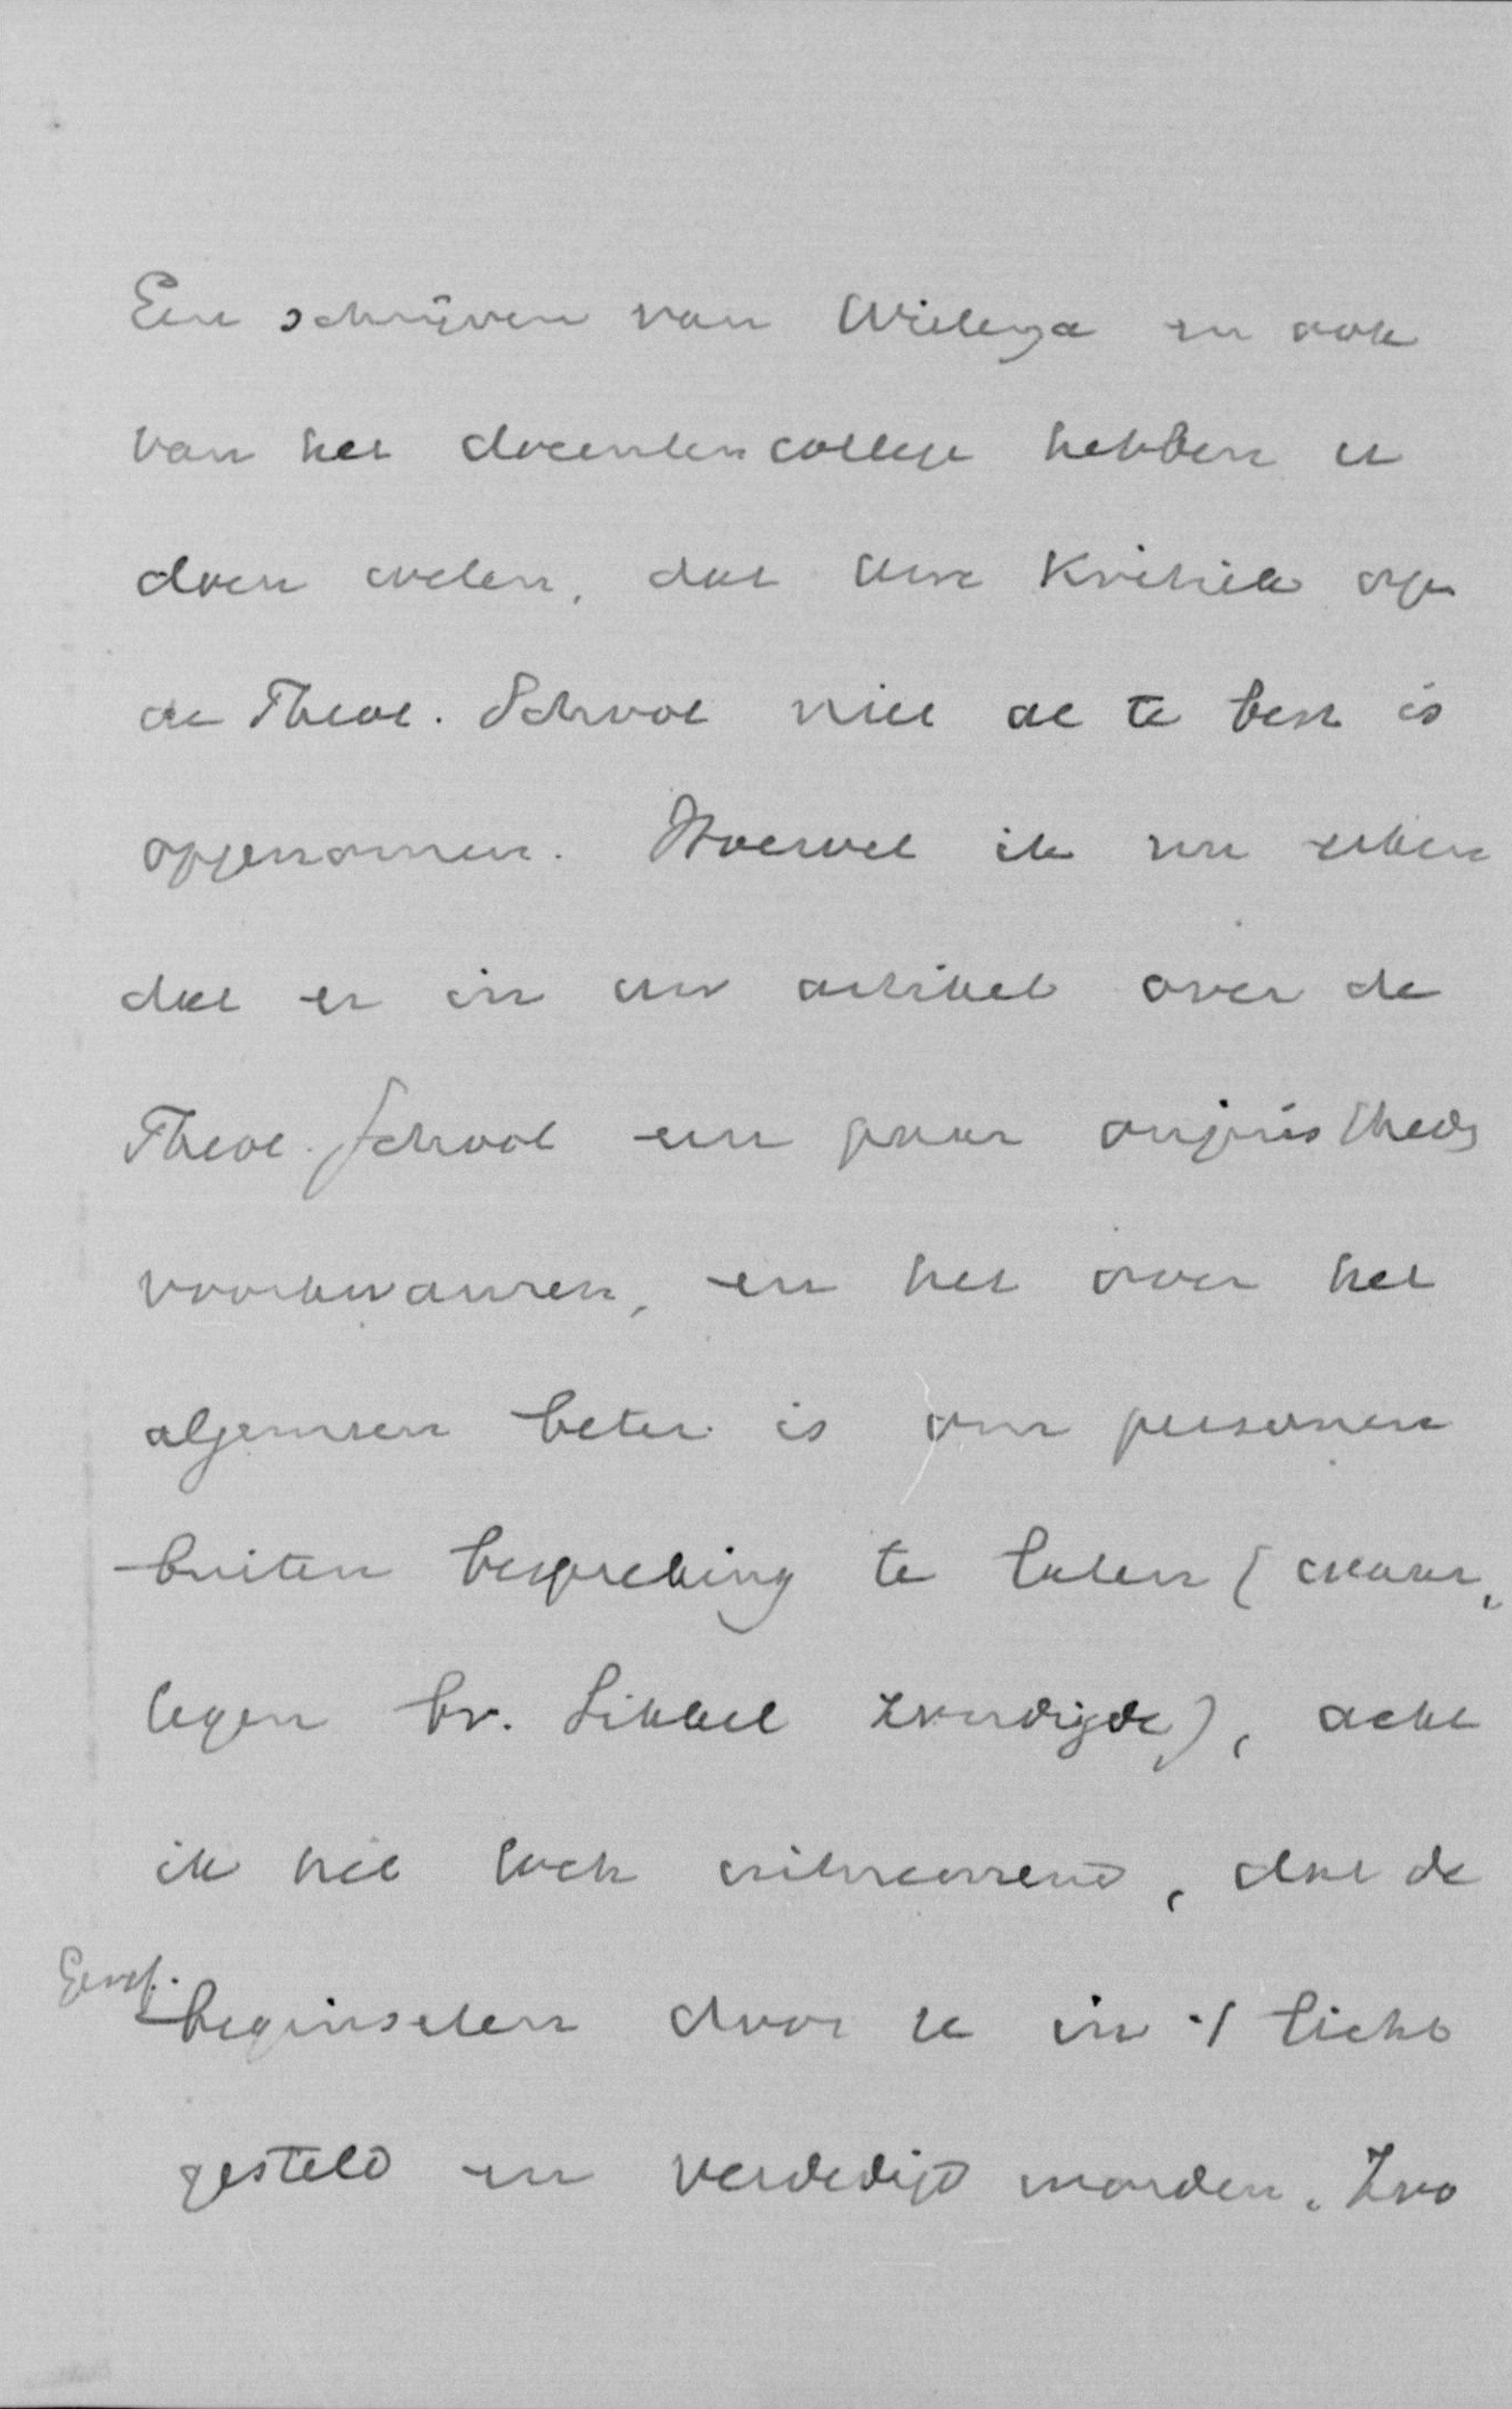 Een schrijven van Wielenga en ook
van het docentencollege hebben u
doen weten, dat uwe Kritiek op
de Theol. School niet al te best is
opgenomen. Hoewel ik nu erken
dat er in uw artikel over de
Theol. School een paar onjuistheden
voorkwamen, en het over het
algemeen beter is om personen
buiten bespreking te laten (waar,
tegen br. Sikkel zondigde), acht
ik het toch uitnemend, dat de
Geref.
beginselen door u in 't licht
gesteld en verdedigd worden. Zoo